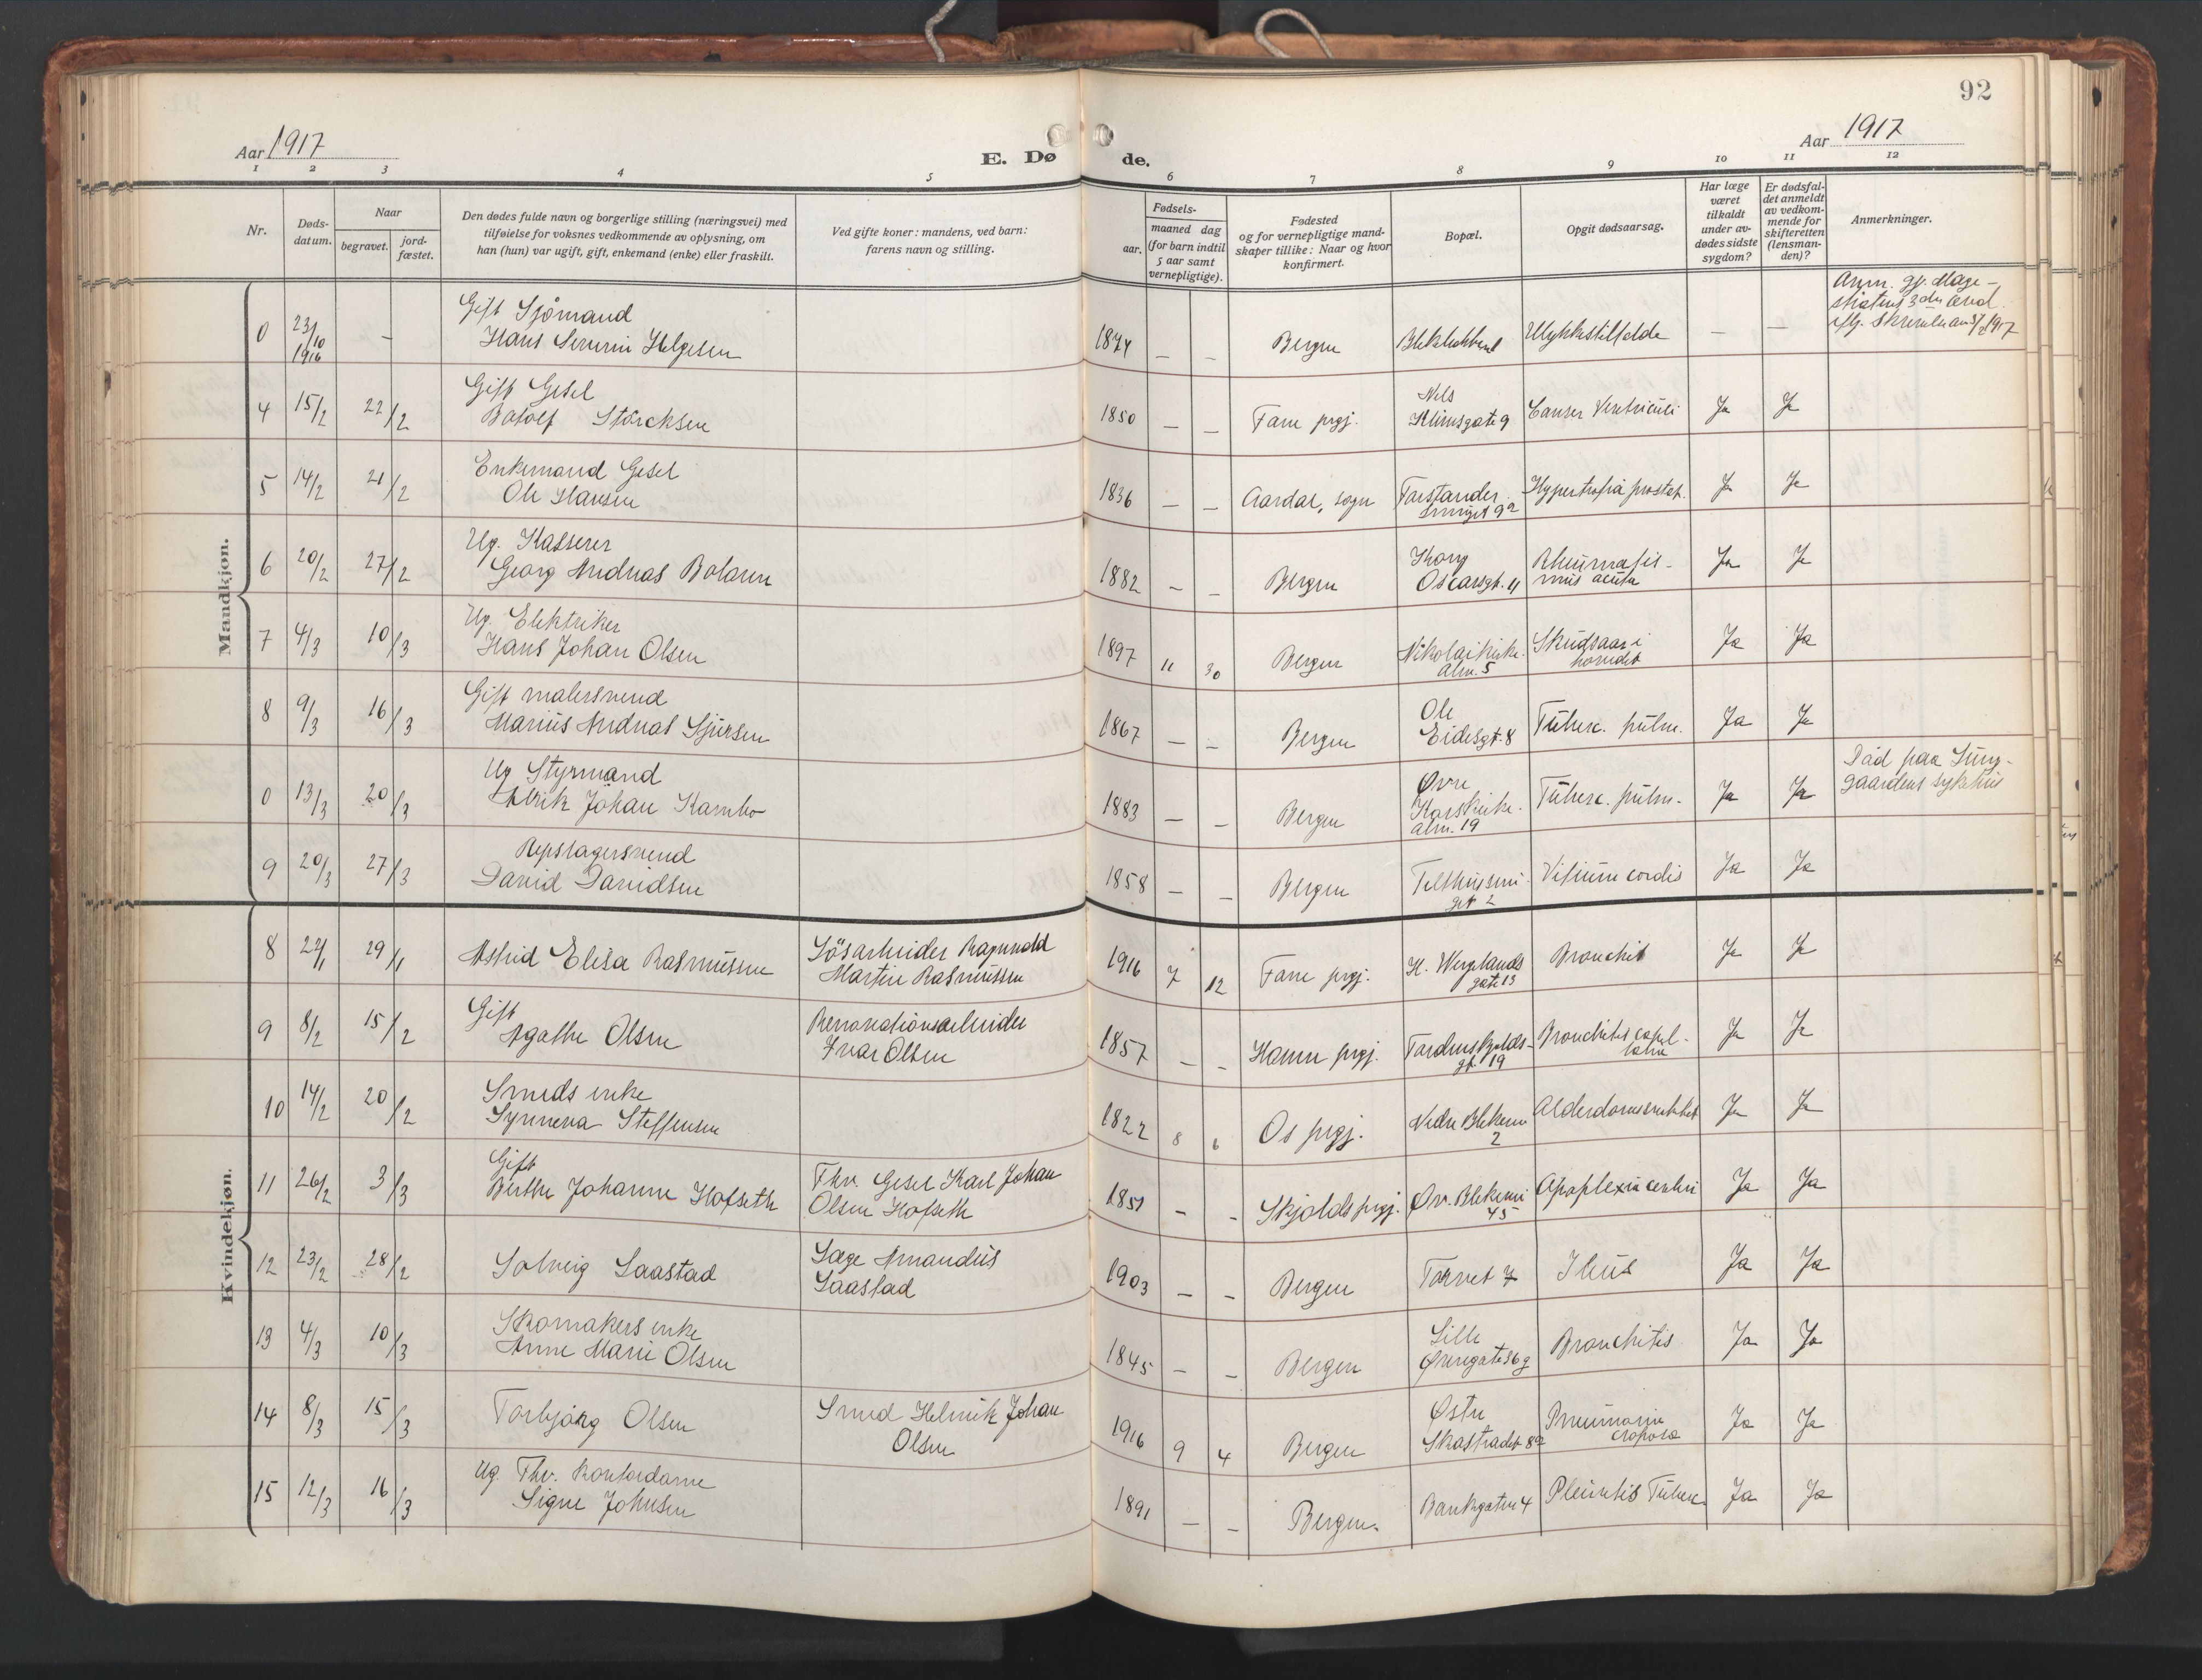 92
Aar 1917
E. Dø
de.
Aar 1917
1 2 3 4 5 6 7 8 9 10 11 12
Nr.
Døds-
datum.
Naar
begravet.
jord-
fæstet.
Den dødes fulde navn og borgerlige stilling (næringsvei) med
tilføielse for voksnes vedkommende av oplysning, om
han (hun) var ugift, gift, enkemand (enke) eller fraskilt.
Ved gifte koner: mandens, ved barn:
farens navn og stilling.
Fødsels-
aar.
maaned dag
(for barn indtil
5 aar samt
vernepligtige).
Fødested
og for vernepligtige mand-
skaper tillike: Naar og hvor
konfirmert.
Bopæl.
Opgit dødsaarsag.
Har læge
været
tilkaldt
under av-
dødes sidste
sygdom?
Er dødsfal-
det anmeldt
av vedkom-
mende for
skifteretten
(lensman-
den)?
Anmerkninger.
Mandkjøn.
0 23/10 1916 –
Gift Sjömand
Hans Severin Helgesen
1874 – – Bergen Ulykkestilfelde – –
Anm. gj. Mage-
3die
1917
4 15/2 22/2
Gift Gesel
Botolf Störcksen
1850 – – Fane prgj.
Nels
Klimsgate 9
Canser Ventriculi Ja Ja
5 14/2 21/2
Enkemand Gesel
Ole Hansen
1836 – – Aardal, sogn
Forstander
smuget 9a
Hypertrofia prostat. Ja Ja
6 20/2 27/2
Ug. Kasserer
Georg Andreas Bolann
1882 – – Bergen
Kong
Oscarsgt. 11
Rheumatis-
mus acuta
Ja Ja
7 4/3 10/3
Ug. Elektriker
Hans Johan Olsen
1897 11 30 Bergen
Nikolaikirke-
alm. 5
Skudsaar i
hovedet
Ja Ja
8 9/3 16/3
Gift malersvend
Marius Andreas Sjursen
1867 – – Bergen
Ole
Eidesgt. 8
Tuberc. pulm. Ja Ja
0 13/3 20/3
Ug Styrmand
Johan Kambo
1883 – – Bergen
Øvre
Korskirke-
alm. 19
Tuberc. pulm. Ja Ja
Död paa Lung-
gaardens sykehus
9 20/3 27/3
Repslagersvend
David Davidsen
1858 – – Bergen
Telthussmu-
get 2
Vitium cordis Ja Ja
Kvindekjøn.
8 22/1 29/1
Astrid Elisa Rasmussen
Lösarbeider Ragnvald
Martin Rasmussen
1916 7 12 Fane prgj.
H. Wergelands
gate 13
Bronchit Ja Ja
9 8/2 15/2
Gift
Agathe Olsen
Renovationsarbeider
Ivar Olsen
1857 – – Hamre prgj.
Tordenskjolds-
gt. 19
Bronchitis capil-
laris
Ja Ja
10 14/2 20/2
Smeds enke
Synneva Steffensen
1822 8 6 Os prgj.
Nedre Blekevei
2
Alderdomssvakhet Ja Ja
11 26/2 3/3
Gift
Birthe Johanne Hofseth
Fhv. Gesel Karl Johan
Olsen Hofseth
1851 – – Skjolds prgj.
Øv. Blekevei
45
Apoplexia cerebri Ja Ja
12 23/2 28/2
Solveig Laastad
Læge Amandus
Laastad
1903 – – Bergen Torvet 7 Ileus Ja Ja
13 4/3 10/3
Skomakers enke
Anne Marie Olsen
1845 – – Bergen
Lille
Øvregate 36 g
Bronchitis Ja Ja
14 8/3 15/3
Torbjörg Olsen
Smed Helmik Johan
Olsen
1916 9 4 Bergen
Østre
Skostrædet 8a
Pneumonia
croposa
Ja Ja
15 12/3 16/3
Ug. Fhv. Kontordame
Signe Johnsen
1891 – – Bergen. Bankgaten 4 Pleuritis Tuberc. Ja Ja